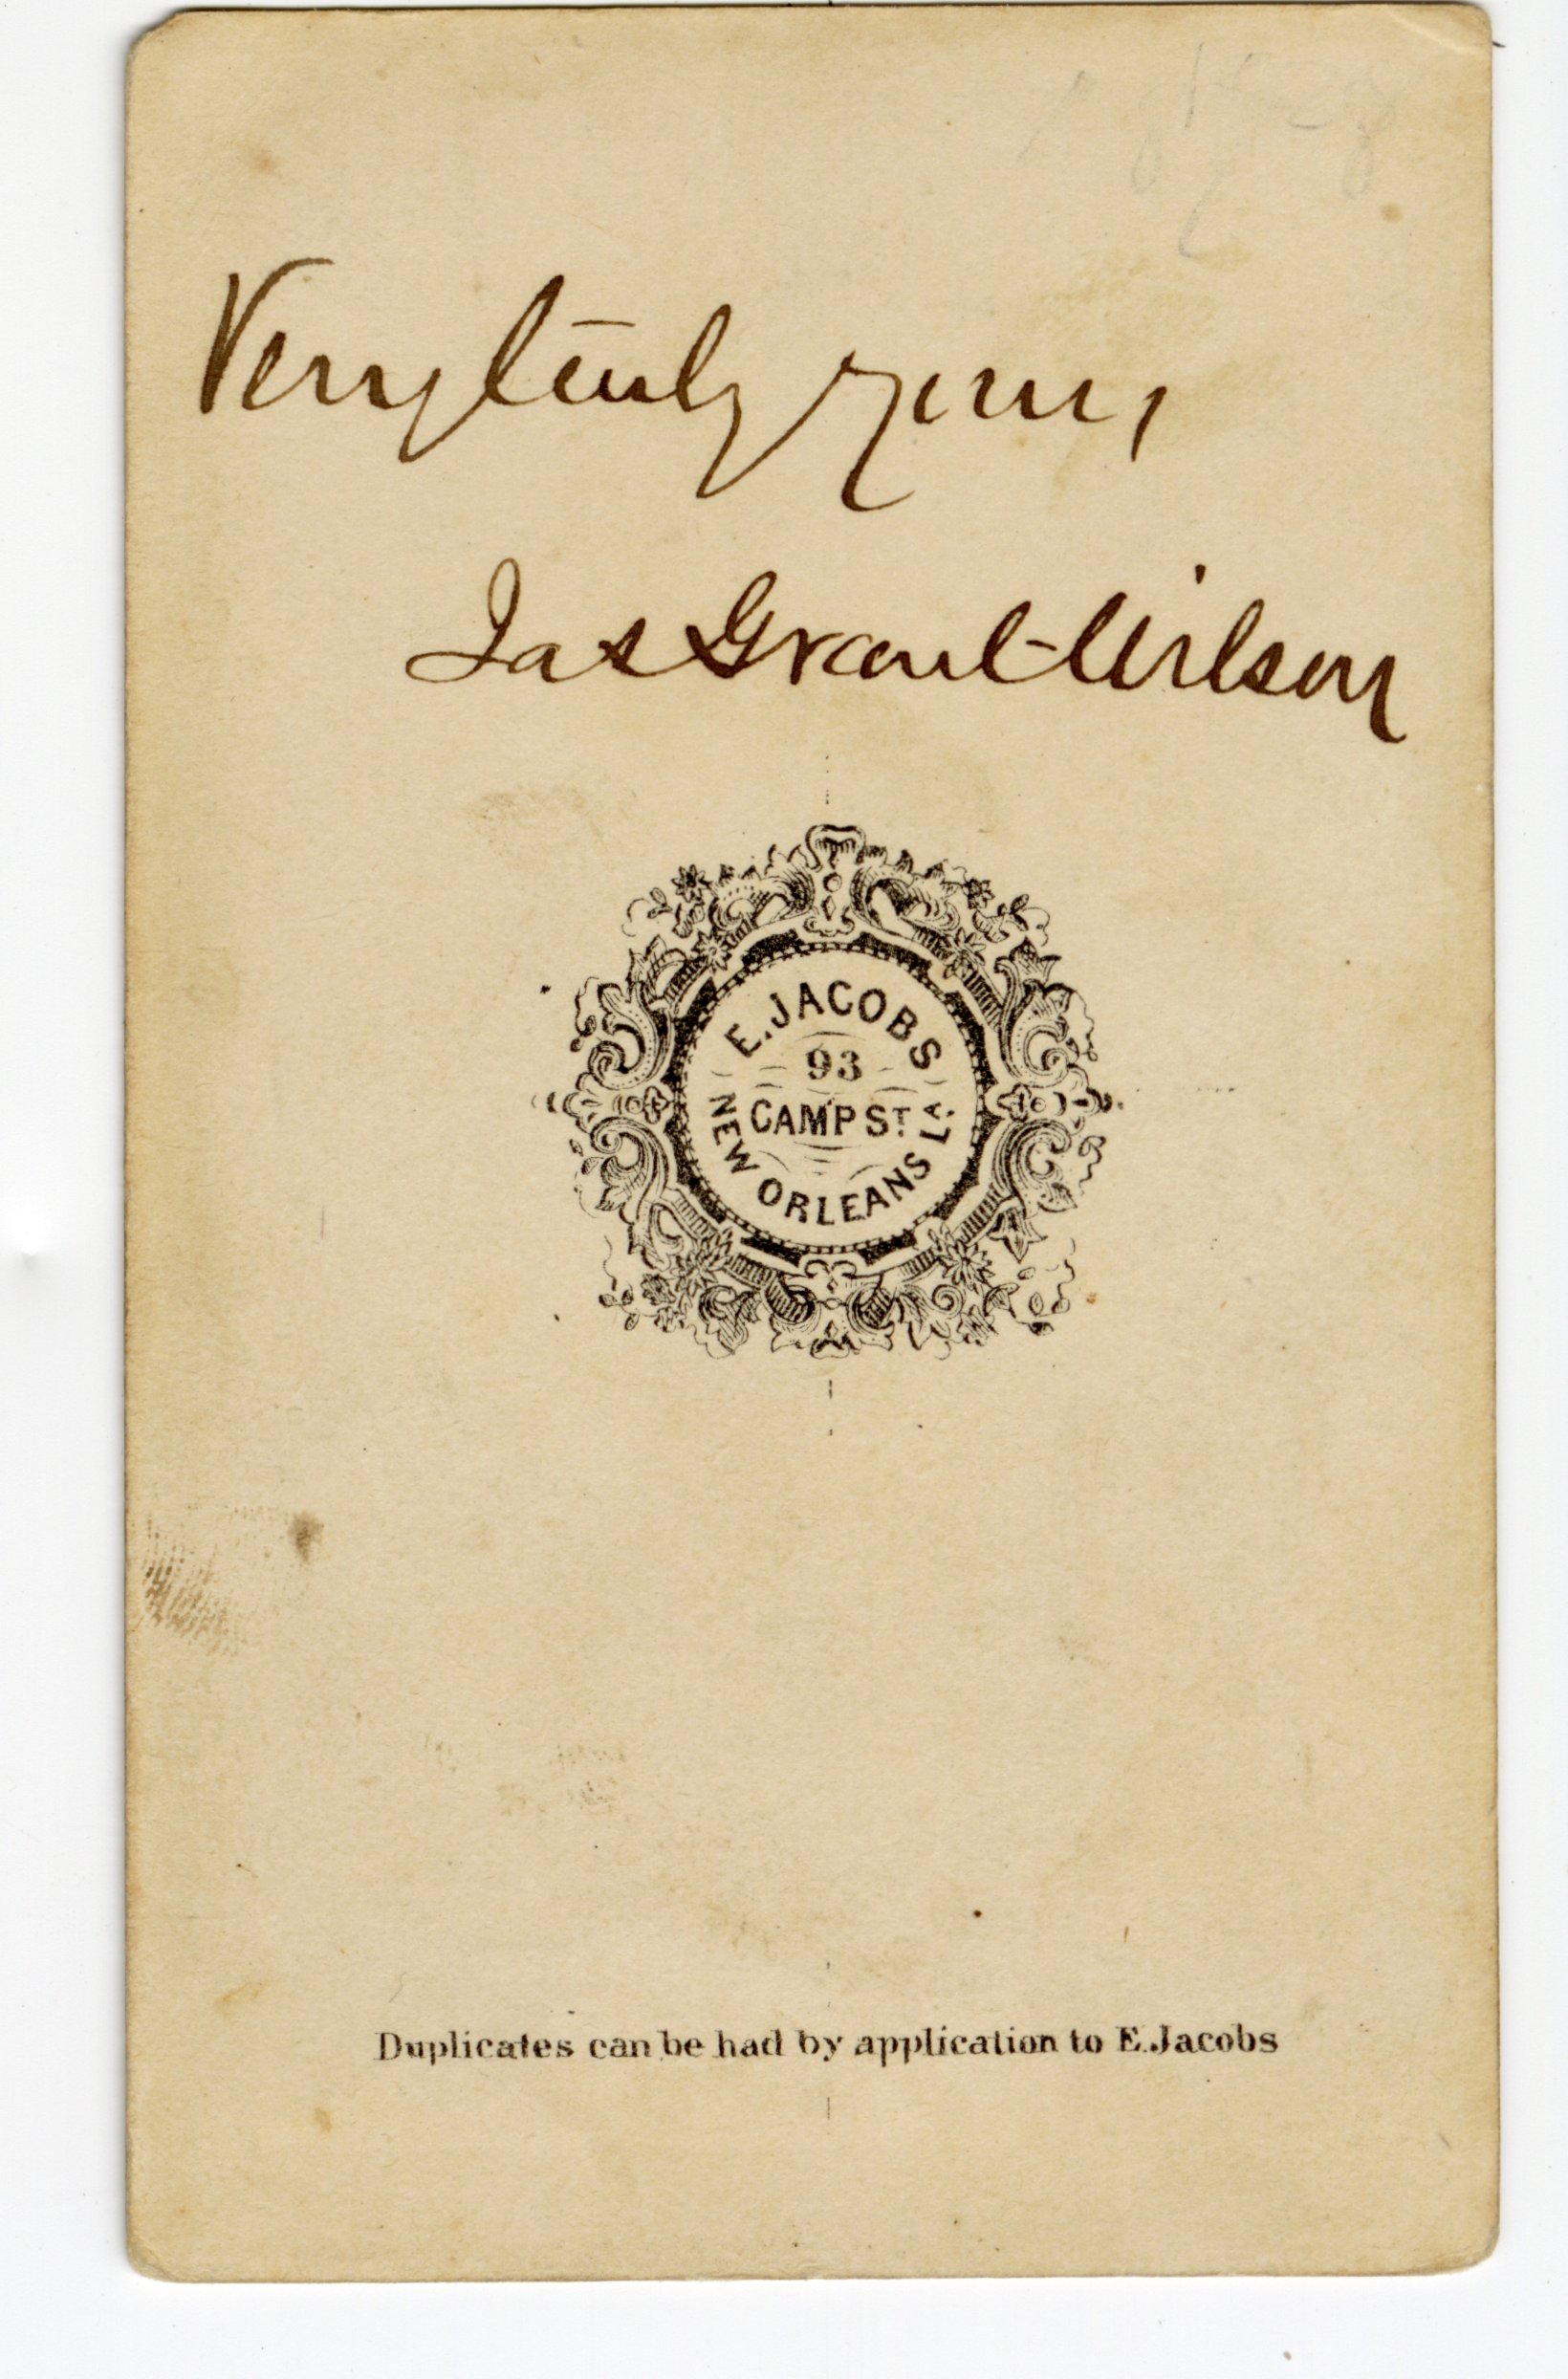 Very truly yours,
Jas Grant Wilson
E. JACOBS
93
CAMP ST
NEW ORLEANS LA.
Duplicates can be had by application to E. Jacobs